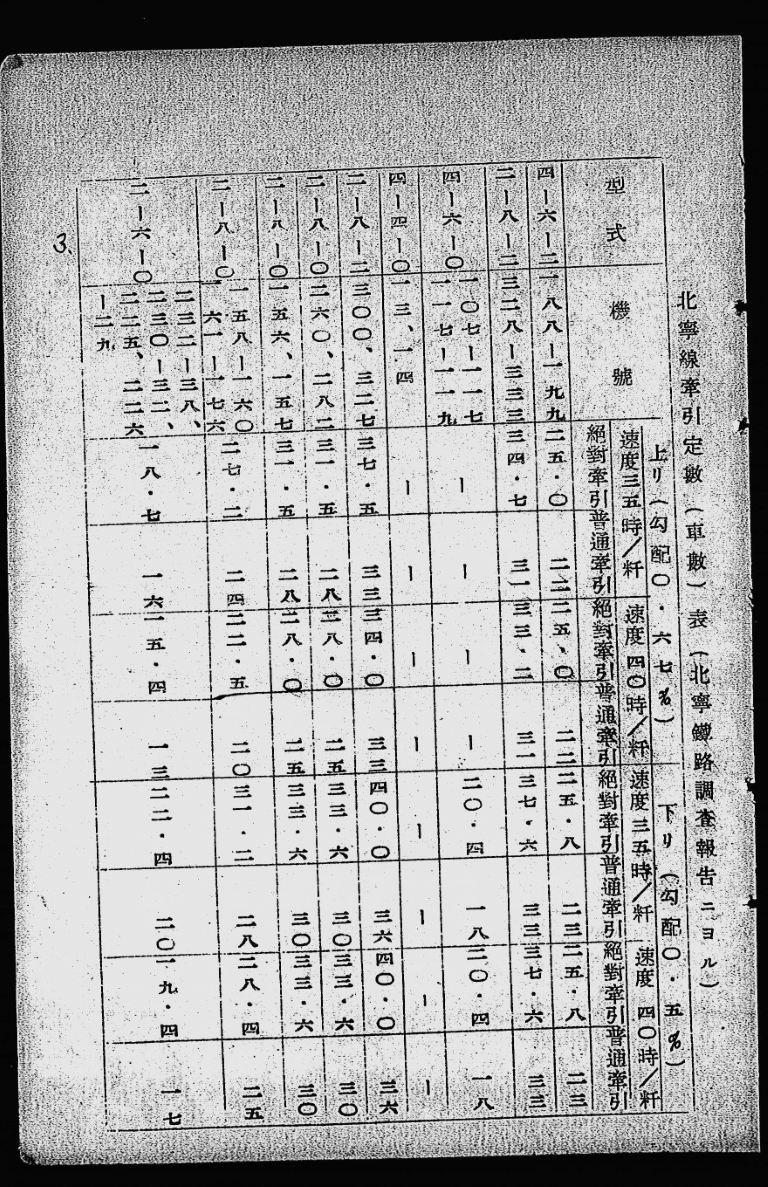 北寧線牽引定數(車數)表(北寧鐵路調査報告ニヨル)
上リ(勾配〇・六七%)
下リ(勾配〇・五%)
速度三五時/粁
速度四〇時/粁
速度三五時/粁
速度四〇時/粁
型式 機號 絕對牽引 普通牽引 絕對牽引 普通牽引 絕對牽引 普通牽引 絕對牽引 普通牽引
四ー六ー二 一八八ー一九九 二五・〇 二二 二五・〇 二二 二五・八 二三 二五・八 二三
二ー八ー二 三二八ー三三三 三四・七 三一 三三・二 三一 三七・六 三三 三七・六 三三
四ー六ー〇 一〇七ー一一七 一一七ー一一九 ー ー ー ー 二〇・四 一八 二〇・四 一八
四ー四ー〇 一三、一四 ー ー ー ー ー ー ー ー
二ー八ー二 三〇〇、三二七 三七・五 三三 三四・〇 三三 四〇・〇 三六 四〇・〇 三六
二ー八ー〇 二六〇、二八二 三一・五 二八 二八・〇 二五 三三・六 三〇 三三・六 三〇
二ー八ー〇 一五六、一五七 三一・五 二八 二八・〇 二五 三三・六 三〇 三三・六 三〇
二ー八ー〇 一五八ー一六〇 一六一ー一七六 二七・二 二四 二二・五 二〇 三一・二 二八 二八・四 二五
二ー六ー〇 二三二ー三八、 二三〇ー三二、 二二五、二二六 ー二九 一八・七 一六 一五・四 一三 二二・四 二〇 一九・四 一七
3、